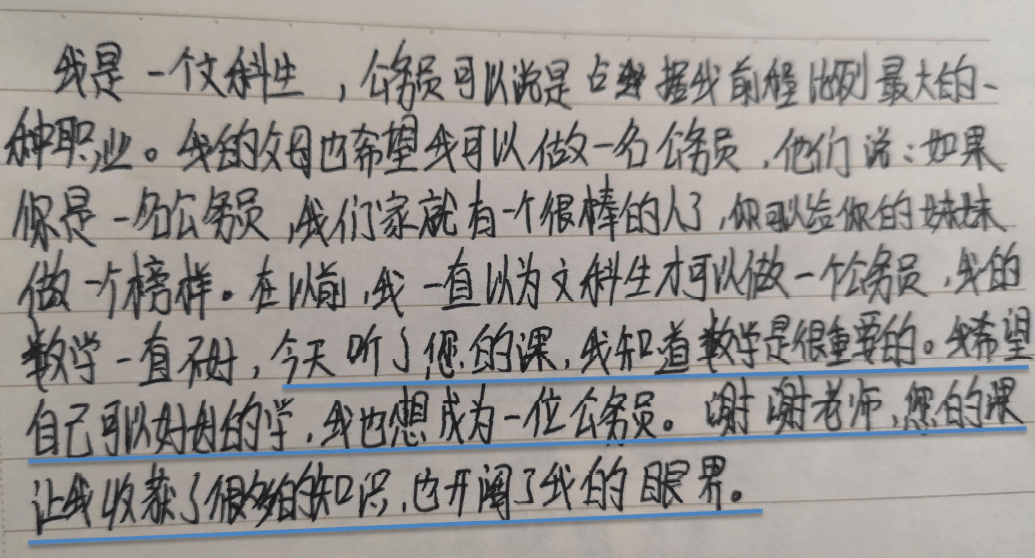 我是一个文科生，公务员可以说是占据我前程比例最大的一
种职业。我的父母也希望我可以做一名公务员，他们说：如果
你是一名公务员，我们家就有一个很棒的人了，你可以给你的妹妹
做一个榜样。在以前，我一直以为文科生才可以做一个公务员，我的
数学一直不好，今天听了您的课，我知道数学是很重要的。我希望
自己可以好好的学，我也想成为一位公务员。谢谢老师，您的课
让我收获了很多的知识，也开阔了我的眼界。